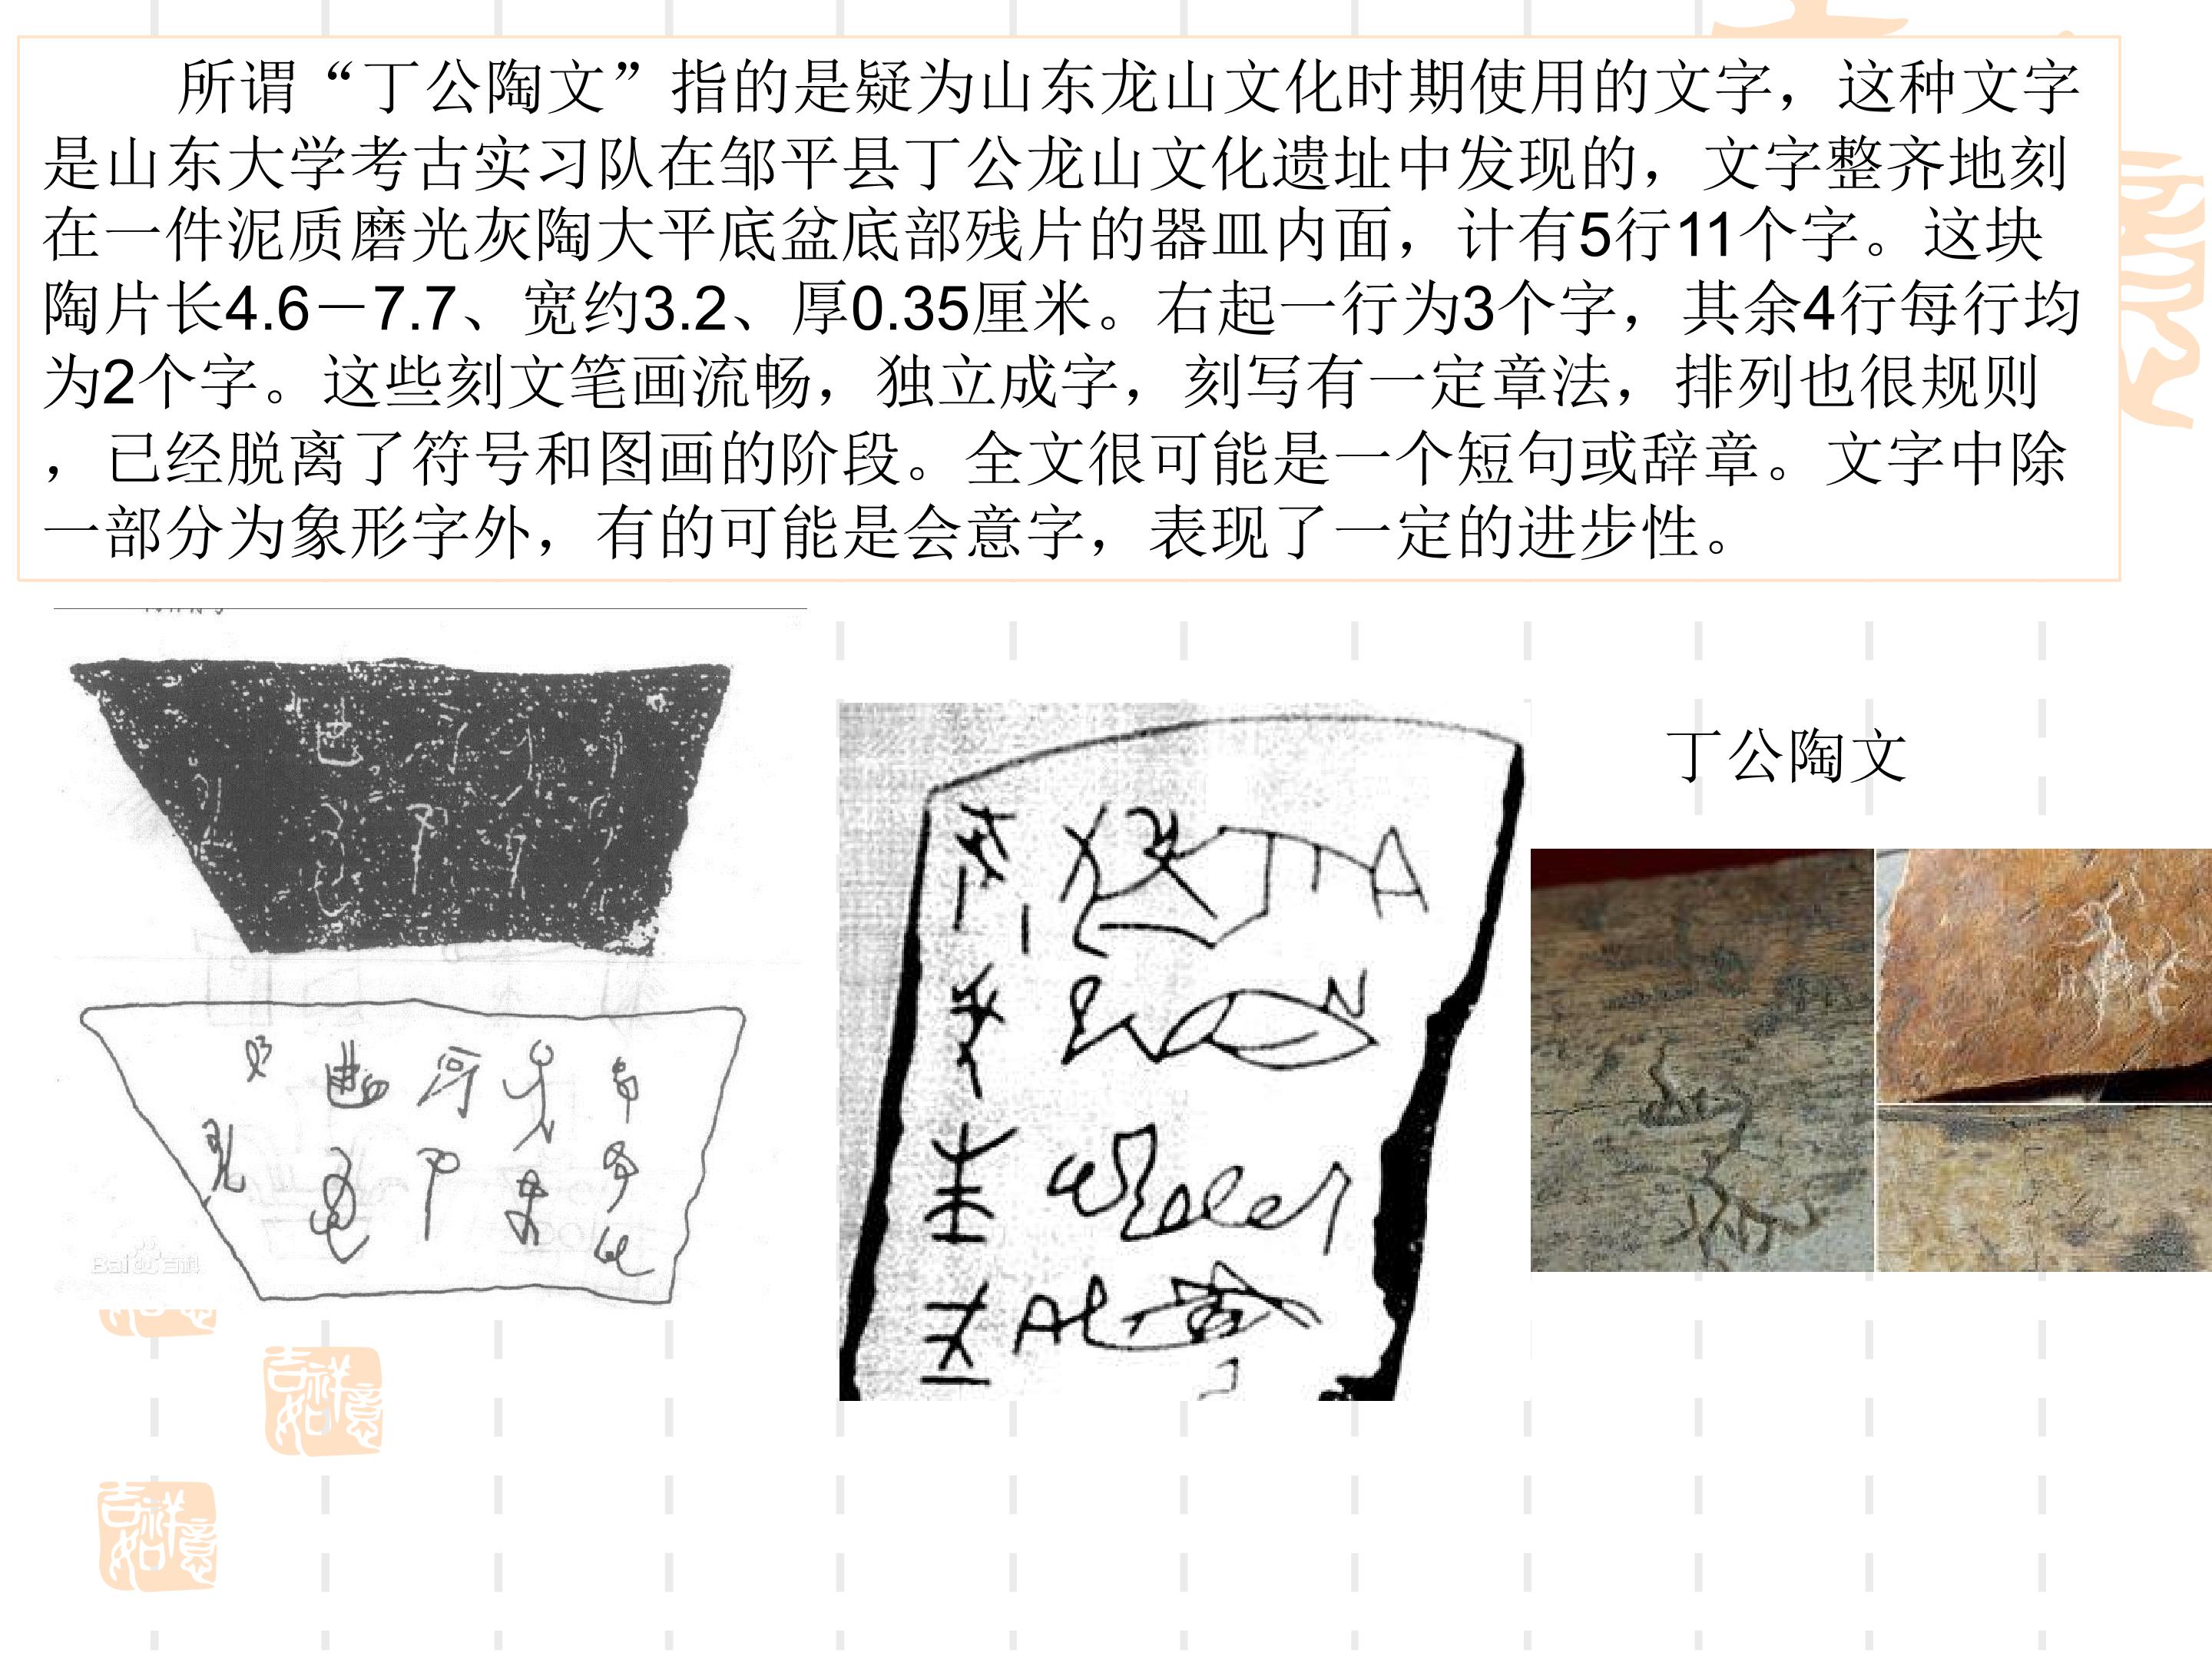 所谓“丁公陶文”指的是疑为山东龙山文化时期使用的文字，这种文字
是山东大学考古实习队在邹平县丁公龙山文化遗址中发现的，文字整齐地刻
在一件泥质磨光灰陶大平底盆底部残片的器皿内面，计有5行11个字。这块
陶片长4.6－7.7、宽约3.2、厚0.35厘米。右起一行为3个字，其余4行每行均
为2个字。这些刻文笔画流畅，独立成字，刻写有一定章法，排列也很规则
，已经脱离了符号和图画的阶段。全文很可能是一个短句或辞章。文字中除
一部分为象形字外，有的可能是会意字，表现了一定的进步性。
丁公陶文
Bai百科
吉祥如意
吉祥如意